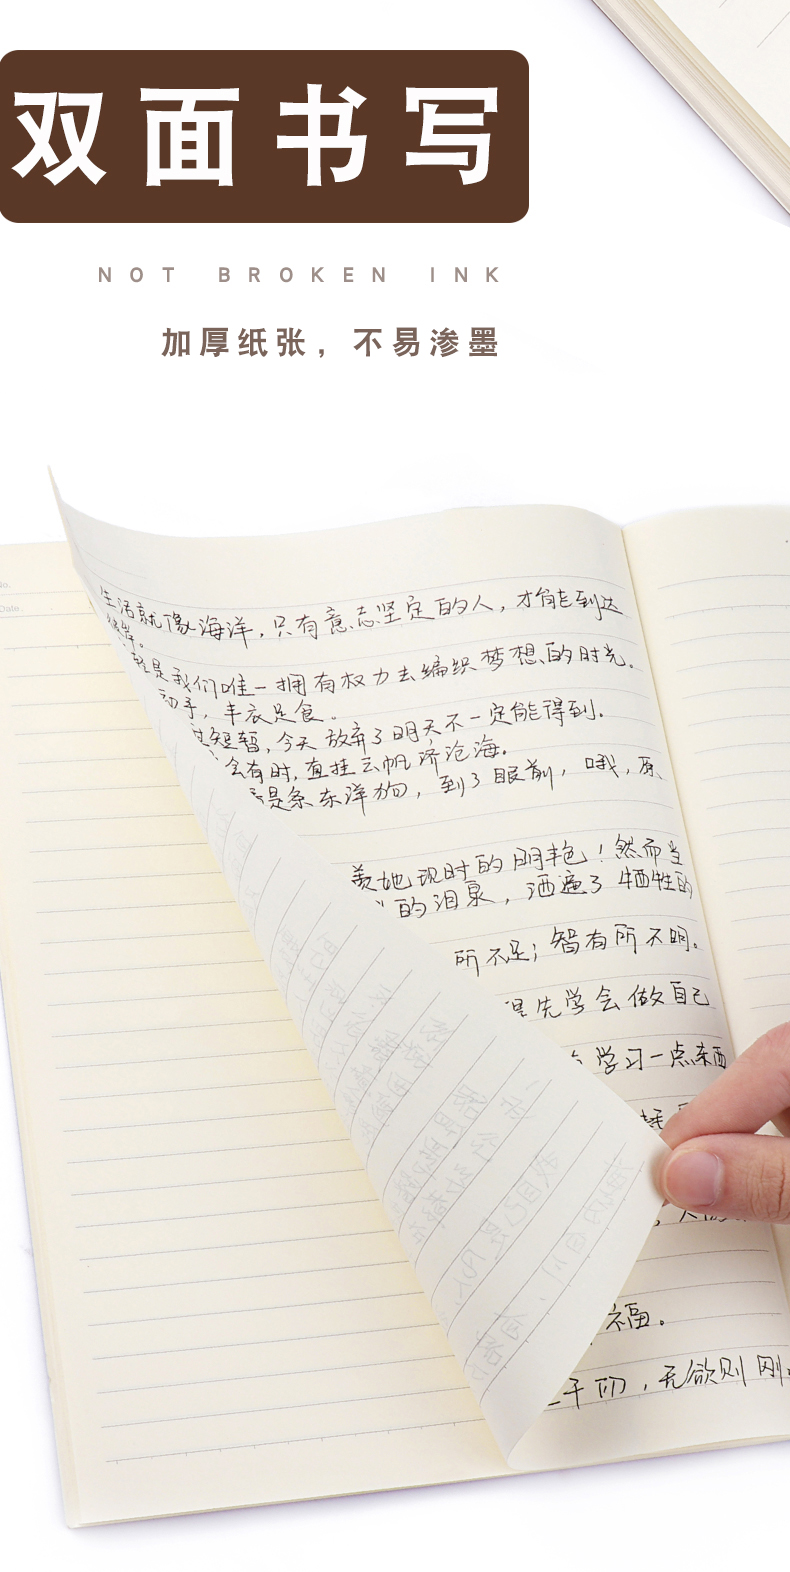 双面书写
NOT BROKEN INK
加厚纸张，不易渗墨
No.
Date
生活就像海洋，只有意志坚定的人，才能到达
彼岸。
是我们唯一拥有权力去编织梦想的时光。
动手，丰衣足食。
短暂，今天放弃了明天不一定能得到.
会有时，直挂云帆济沧海.
是条东洋狗，到了眼前，哦，原
羡她现时的明艳！然而当
的泪泉，洒遍了牺牲的
所不足；智有所不明。
先学会做自己
学习一点东西
福。
千仞，无欲则刚